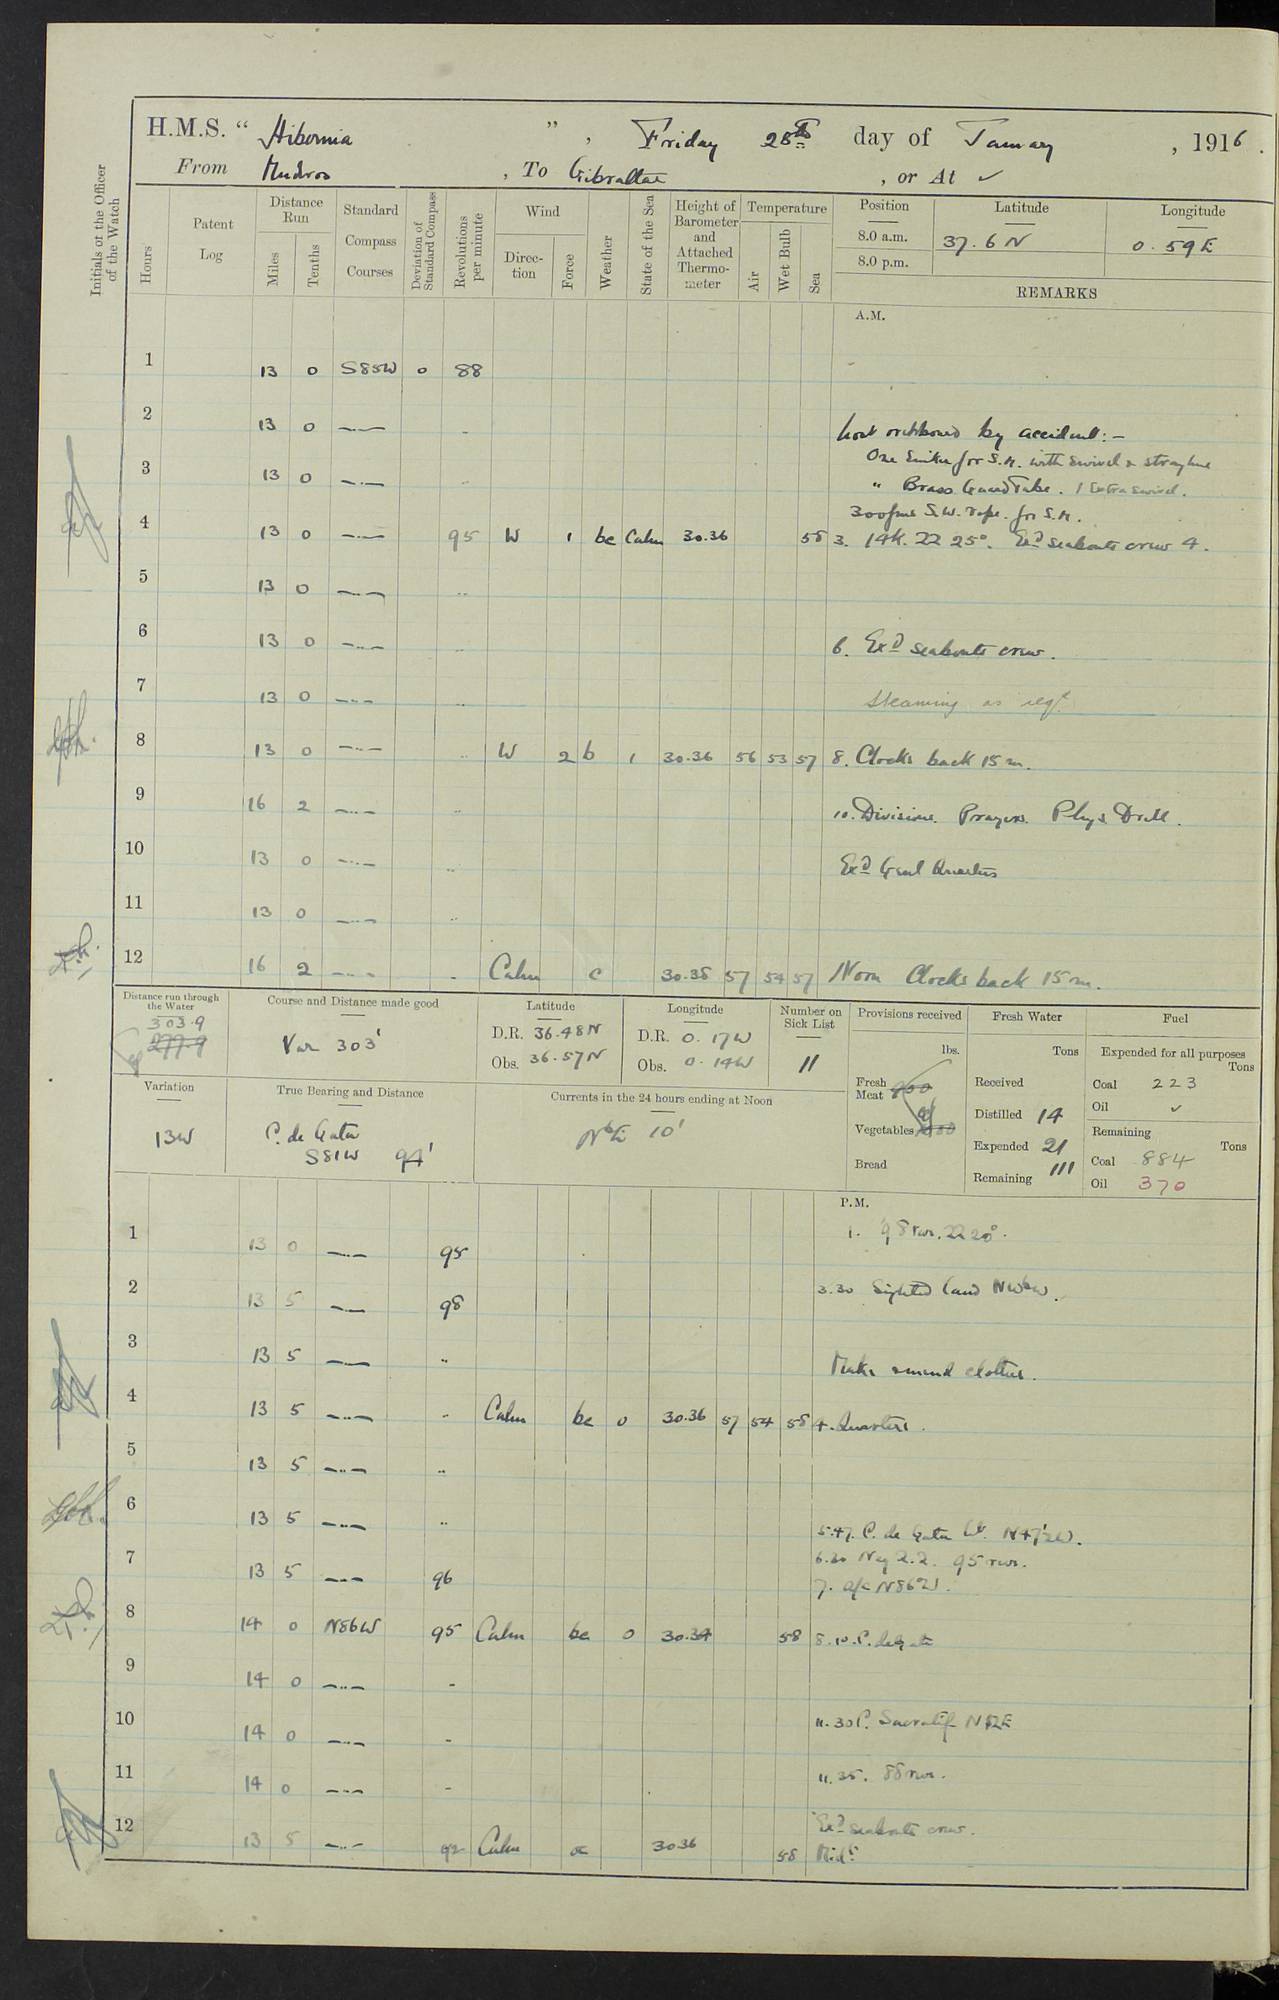 H.M.S. " Hibernia ", Friday 28th day of January, 1916.
From Mudros, To Gibraltar, or At ✓
Initials of the Officer of the Watch
Hours
Patent Log
Distance Run
Miles
Tenths
Standard Compass Courses
Deviation of Standard Compass
Revolutions per minute
Wind
Direction
Force
Weather
State of the Sea
Height of Barometer and Attached Thermometer
Temperature
Air
Wet Bulb
Sea
Position
Latitude
Longitude
8.0 a.m. 37.6 N 0.59 E
8.0 p.m.
REMARKS
A.M.
1 13 0 S85W 0 88
2 13 0 —..— Lost overboard by accident:—
3 13 0 —..— One Sinker for S.M. with swivel & strayline
" Brass Guard Tube. 1 Extra swivel.
300 fms S.W. rope for S.M.
4 13 0 —..— 95 W 1 bc Calm 30.36 58 3. 14K. 22 25°. Exd seaboats crew 4.
5 13 0 —..— ..
6 13 0 —..— .. 6. Exd seaboats crew.
7 13 0 —..— .. Steaming as reqd
8 13 0 —..— .. W 2 b 1 30.36 56 53 57 8. Clocks back 15 m.
9 16 2 —..— .. 10. Divisions. Prayers. Phys Drill.
10 13 0 —..— .. Exd Genl Quarters
11 13 0 —..— ..
12 16 2 —..— .. Calm c 30.38 57 54 57 Noon Clocks back 15 m.
Distance run through the Water
303.9
277.9
Course and Distance made good
Var 303'
Latitude
D.R. 36.48 N
Obs. 36.57 N
Longitude
D.R. 0.17 W
Obs. 0.14 W
Number on Sick List
11
Provisions received
lbs.
Fresh Meat
Vegetables
Bread
Fresh Water
Tons
Received
Distilled 14
Expended 21
Remaining 111
Fuel
Expended for all purposes
Tons
Coal 223
Oil ✓
Remaining
Tons
Coal 884
Oil 370
Variation
13W
True Bearing and Distance
C. de Gata
S81W 94'
Currents in the 24 hours ending at Noon
NbE 10'
P.M.
1 13 0 —..— 95 1. 98 revs. 22 20°.
2 13 5 —..— 98 3.30 Sighted land NWbW.
3 13 5 —..— .. Make & mend clothes.
4 13 5 —..— .. Calm bc 0 30.36 57 54 58 4. Quarters.
5 13 5 —..— ..
6 13 5 —..— .. 5.47. C. de Gata Lt. N47½W.
7 13 5 —..— 96 6.20 Neg 2.2. 95 revs.
7. a/c N86W.
8 14 0 N86W 95 Calm bc 0 30.34 58 8.10. C. de Gata
9 14 0 —..— ..
10 14 0 —..— .. 11.30 C. Sacratif N12E
11 14 0 —..— .. 11.35. 88 revs.
12 13 5 —..— 92 Calm 30.36 58 Exd seaboats crew.
Midt